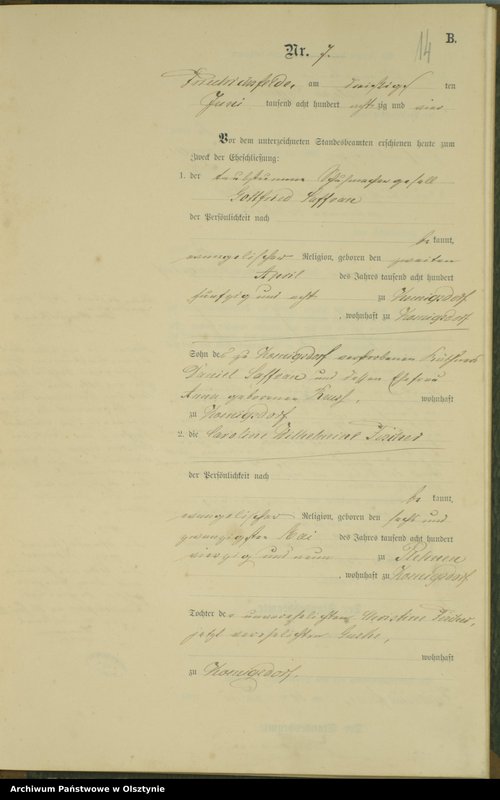 14
B.
Nr. 7.
Friedrichsfelde, am dreißigsten
Juni tausend acht hundert achtzig und vier
Vor dem unterzeichneten Standesbeamten erschienen heute zum
Zweck der Eheschließung:
1. der taubstumme Schuhmachergesell
Gottfried Saffran
der Persönlichkeit nach
bekannt,
evangelischer Religion, geboren den zweiten
April des Jahres tausend acht hundert
fünfzig und acht zu
, wohnhaft zu
Sohn des zu verstorbenen
Daniel Saffran und dessen Ehefrau
Anna geborenen wohnhaft
zu
2. die Caroline Wilhelmine
der Persönlichkeit nach
bekannt,
evangelischer Religion, geboren den sechs und
zwanzigsten Mai des Jahres tausend acht hundert
vierzig und neun zu
, wohnhaft zu
Tochter der unverehelichten
jetzt verehelichten
wohnhaft
zu
Archiwum Państwowe w Olsztynie